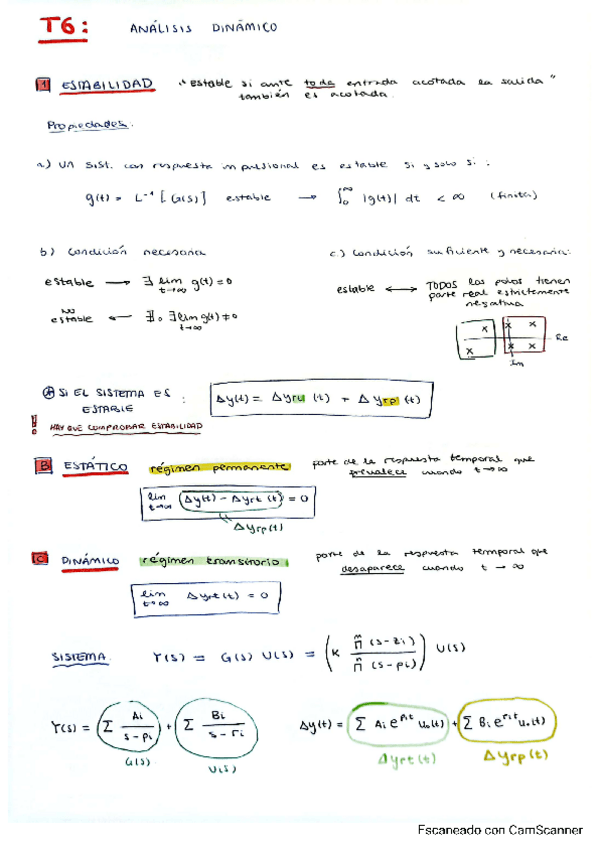 T6: ANÁLISIS DINÁMICO
1 ESTABILIDAD "estable si ante toda entrada acotada la salida"
también es acotada.
Propiedades:
a) un sist. con respuesta impulsional es estable si y solo si:
g(t) = L⁻¹ [G(s)] estable → ∫₀^∞ |g(t)| dt < ∞ (finita)
b) condición necesaria
c) condición suficiente y necesaria:
estable → ∃ lim t→∞ g(t) = 0
estable ↔ TODOS los polos tienen
parte real estrictamente
negativa
no
estable ← ∄ o ∃ lim g(t) ≠ 0
t→∞
x x x
x x x
Re
Im
A SI EL SISTEMA ES
ESTABLE :
Δy(t) = Δyrt (t) + Δyrp (t)
! HAY QUE COMPROBAR ESTABILIDAD
B ESTÁTICO régimen permanente parte de la respuesta temporal que
prevalece cuando t→∞
lim t→∞ (Δy(t) - Δyrt (t)) = 0
Δyrp(t)
C DINÁMICO régimen transitorio parte de la respuesta temporal que
desaparece cuando t → ∞
lim t→∞ Δyrt(t) = 0
SISTEMA Y(s) = G(s) U(s) = (K Π (s-zi) / Π (s-pi)) U(s)
Y(s) = (Σ Ai / s-pi) + (Σ Bi / s-ri)
G(s) U(s)
Δy(t) = (Σ Ai e^pit uo(t)) + (Σ Bi e^rit uo(t))
Δyrt(t) Δyrp(t)
Escaneado con CamScanner